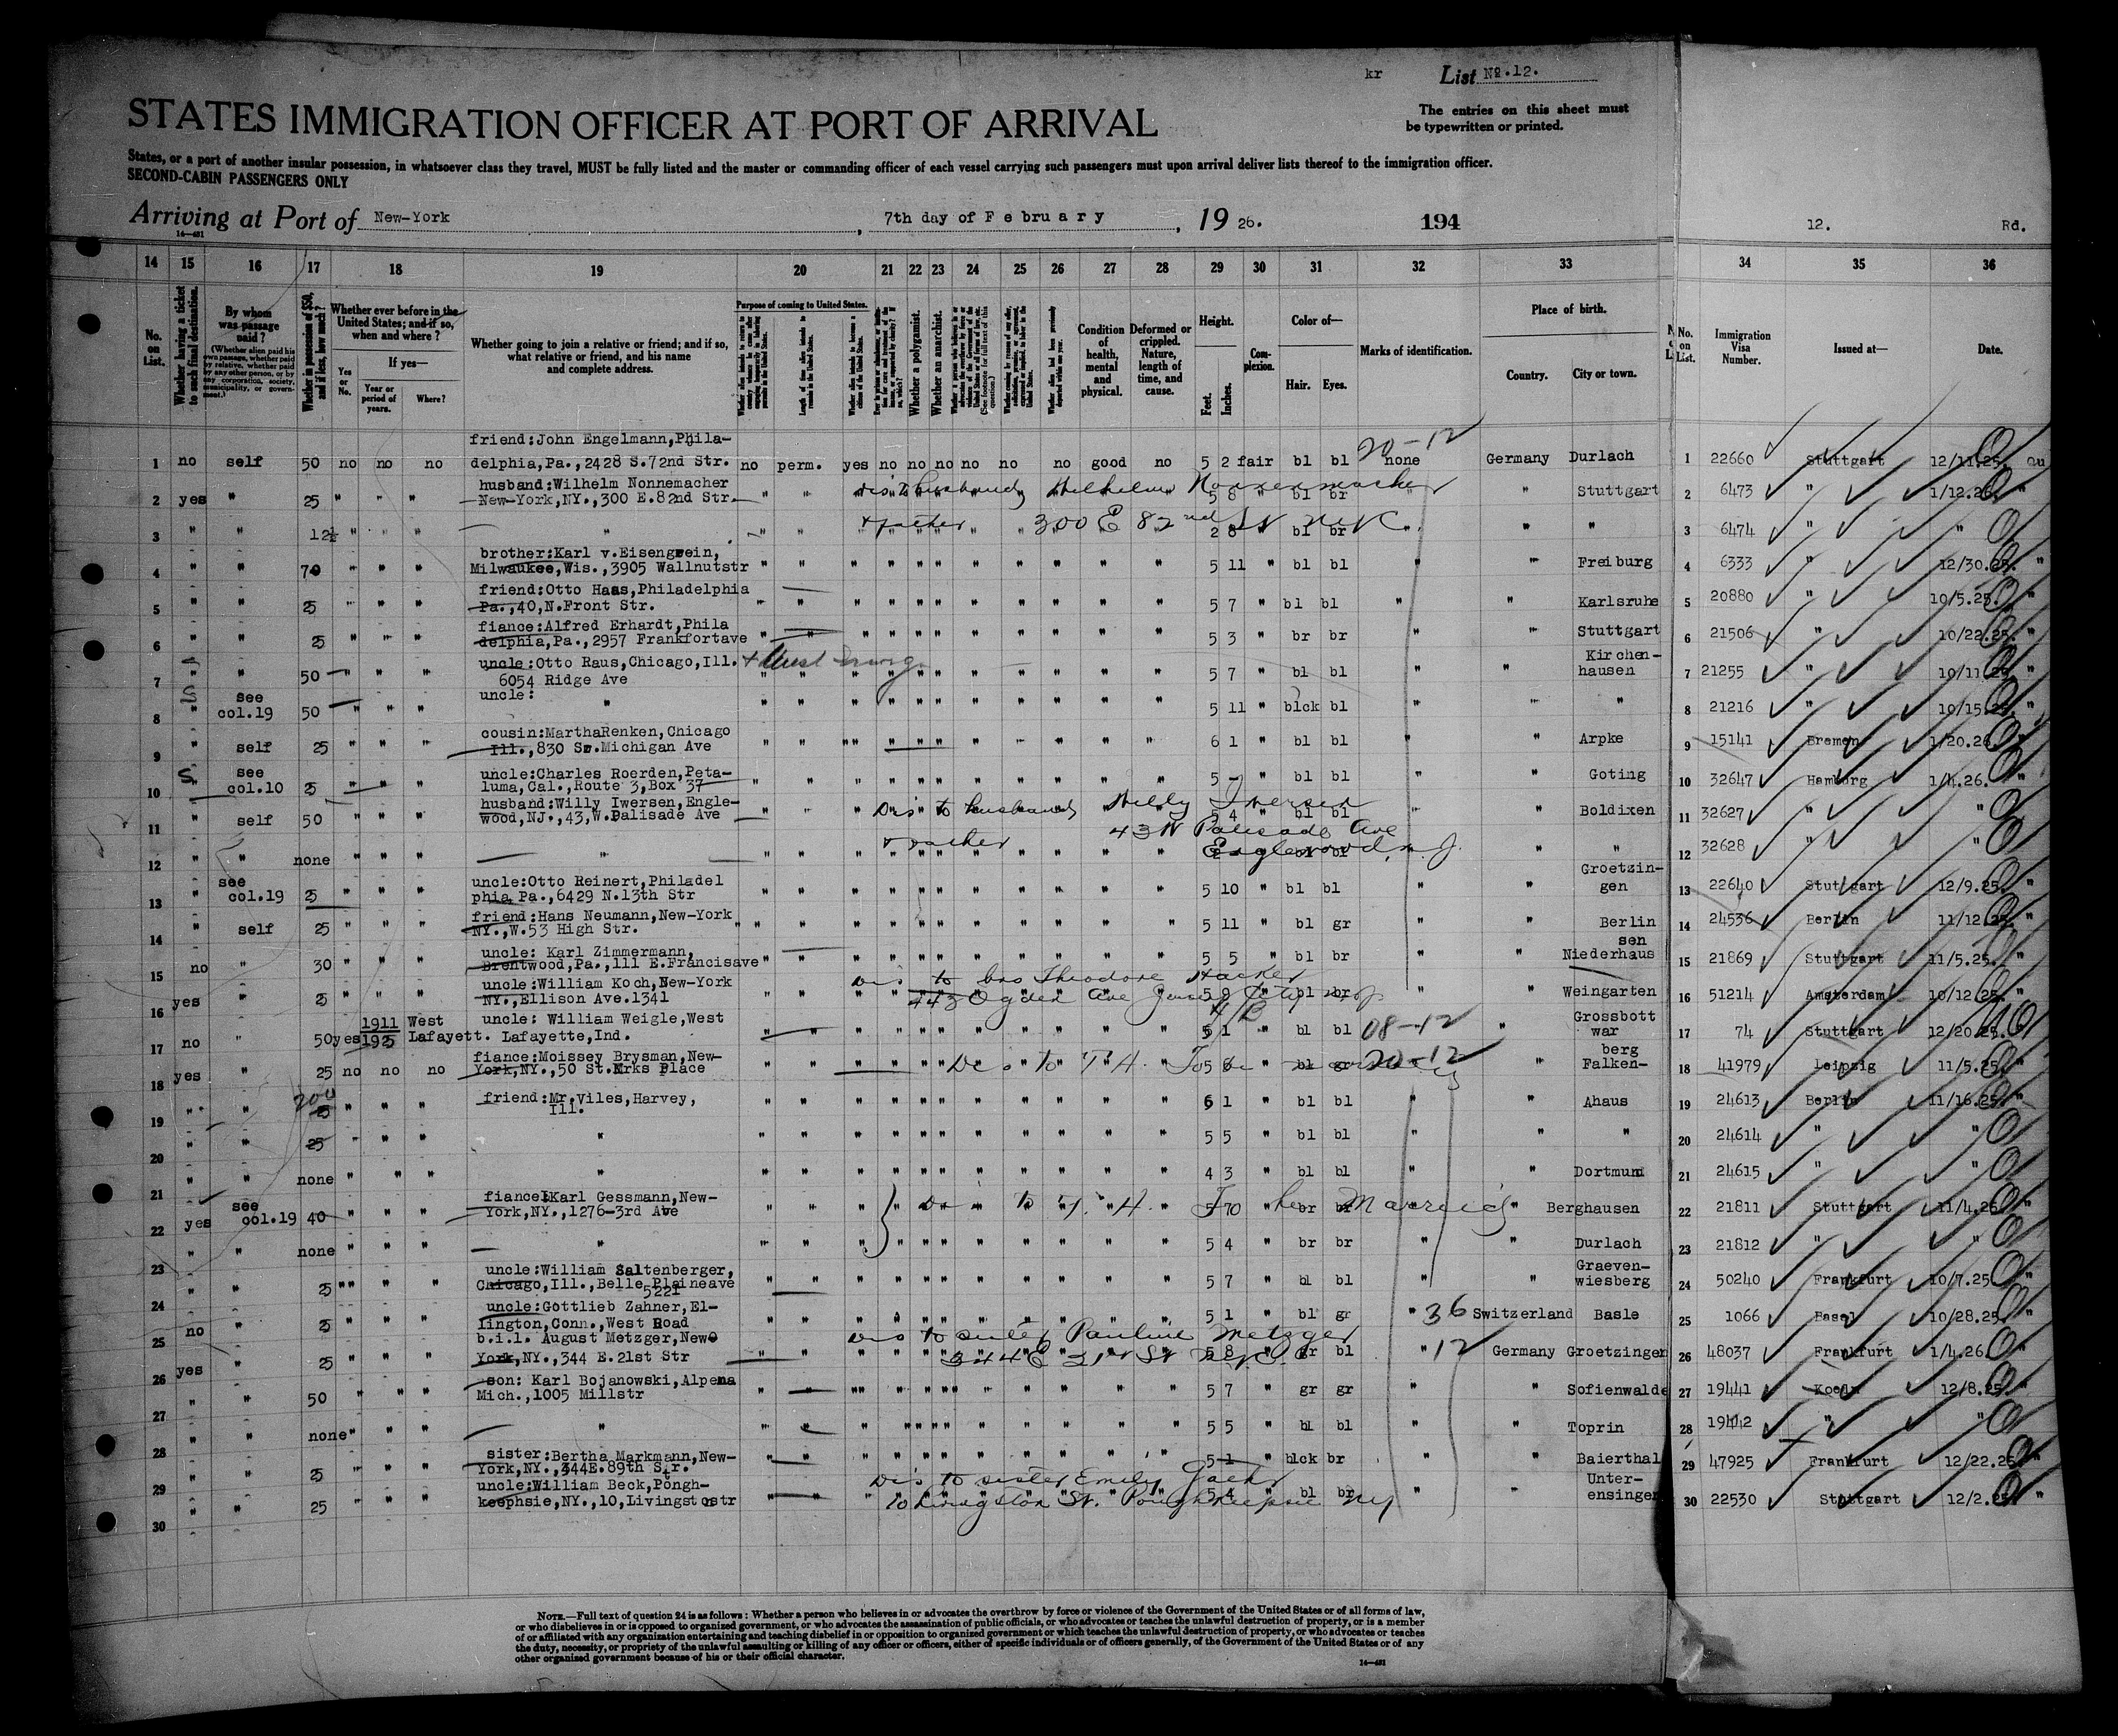 kr List No.12.
STATES IMMIGRATION OFFICER AT PORT OF ARRIVAL
The entries on this sheet must
be typewritten or printed.
States, or a port of another insular possession, in whatsoever class they travel, MUST be fully listed and the master or commanding officer of each vessel carrying such passengers must upon arrival deliver lists thereof to the immigration officer.
SECOND-CABIN PASSENGERS ONLY
Arriving at Port of New-York, 7th day of February, 19 26. 194 12. Rd.
14—431
14 15 16 17 18 19 20 21 22 23 24 25 26 27 28 29 30 31 32 33 34 35 36
No. on List.
Whether having a ticket to such final destination.
By whom was passage paid?
(Whether alien paid his own passage, whether paid by relative, whether paid by any other person, or by any corporation, society, municipality, or government.)
Whether in possession of $50, and if less, how much?
Whether ever before in the United States; and if so, when and where?
If yes—
Yes or No. Year or period of years. Where?
Whether going to join a relative or friend; and if so, what relative or friend, and his name and complete address.
Purpose of coming to United States.
Whether a polygamist.
Whether an anarchist.
Condition of health, mental and physical.
Deformed or crippled. Nature, length of time, and cause.
Height. Feet. Inches.
Complexion.
Color of— Hair. Eyes.
Marks of identification.
Place of birth. Country. City or town.
No. on List.
Immigration Visa Number.
Issued at—
Date.
friend:John Engelmann,Phila-
20-12
1 no self 50 no no no delphia,Pa.,2428 S.72nd Str. no perm. yes no no no no no no good no 5 2 fair bl bl none Germany Durlach 1 22660 Stuttgart 12/11.25.
husband:Wilhelm Nonnemacher
Dis to husband Wilhelm Nonnenmacher
2 yes " 25 " " " New-York,NY.,300 E.82nd Str. " " 5 8 " bl br " " Stuttgart 2 6473 " 1/12.26.
& father 300 E 82nd St N.Y.C.
3 " " 12½ " " " " " " 2 8 " bl br " " " 3 6474 " "
brother:Karl v.Eisengrein,
4 " " 70 " " " Milwaukee,Wis.,3905 Wallnutstr " " " " " " " " " " " 5 11 " bl bl " " Freiburg 4 6333 " 12/30.25.
friend:Otto Haas,Philadelphia
5 " " 25 " " " Pa.,40,N.Front Str. " " " " " " " " " " 5 7 " bl bl " " Karlsruhe 5 20880 " 10/5.25.
fiance:Alfred Erhardt,Phila
6 " " 25 " " " delphia,Pa., 2957 Frankfortave " " " " " " " " " " " 5 3 " br br " " Stuttgart 6 21506 " 10/22.25.
uncle:Otto Raus,Chicago,Ill.
Kirchen-
7 " " 50 " " " 6054 Ridge Ave " " " " " " " " " " " 5 7 " bl bl " " hausen 7 21255 " 10/11.25.
see uncle:
8 " col.19 50 " " " " " " " " " " " " " " " 5 11 " blck bl " " " 8 21216 " 10/15.25.
cousin:MarthaRenken,Chicago
9 " self 25 " " " Ill.,830 So.Michigan Ave " " " " " " " " " " " 6 1 " bl bl " " Arpke 9 15141 Bremen 1/20.26.
see uncle:Charles Roerden,Peta-
10 " col.10 25 " " luma,Cal.,Route 3,Box 37 " " " " " " " " " " 5 - " bl bl " " Goting 10 32647 Hamburg 1/4.26.
husband:Willy Iwersen,Engle-
Dis to husband Willy Iwersen
11 " self 50 " " " wood,NJ.,43,W.Palisade Ave " " " 5 4 " bl bl " " Boldixen 11 32627 " "
& father 43 W Palisade Ave
Englewood, N. J.
12 " " none " " " " " " " " " " 12 32628 " "
see uncle:Otto Reinert,Philadel
Groetzin-
13 " col.19 25 " " " phia Pa.,6429 N.13th Str " " " " " " " " " " " 5 10 " bl bl " " gen 13 22640 Stuttgart 12/9.25.
friend:Hans Neumann,New-York
14 " self 25 " " " NY.,W.53 High Str. " " " " " " " " " " " 5 11 " bl gr " " Berlin 14 24536 Berlin 11/12.25.
uncle: Karl Zimmermann,
sen
15 no " 30 " " " Brentwood,Pa.,111 E.Francisave " " " " " " " " " " 5 5 " bl br " " Niederhaus 15 21869 Stuttgart 11/5.25.
uncle:William Koch,New-York
Dis to bro Theodore Hacker
16 yes " 25 " " " NY.,Ellison Ave.1341 " " 5 9 " bl br " " Weingarten 16 51214 Amsterdam 10/12.25.
443 Ogden Ave Jersey City N J
1911 West uncle: William Weigle,West
Grossbott
17 no " 50 yes 1925 Lafayett. Lafayette,Ind. " " " " " " " " " " 5 1 " bl bl 08-12 " war 17 74 Stuttgart 12/20.25.
fiance:Moissey Brysman,New-
Dis to T. H. To be married
berg
18 yes " 25 no no no York,NY.,50 St.Mrks Place " " " bl gr 20-12 " Falken- 18 41979 Leipzig 11/5.25.
200 friend:Mr.Viles,Harvey,
19 " " 25 " " " Ill. " " " " " " " " " " " 6 1 " bl bl " " Ahaus 19 24613 Berlin 11/16.25.
20 " " 25 " " " " " " " " " " " " " " " 5 5 " bl bl " " " 20 24614 " "
21 " " none " " " " " " " " " " " " " " 4 3 " bl bl " " Dortmund 21 24615 " "
see fiance:Karl Gessmann,New-
Dis to T. H. To be Married
22 yes col.19 40 " " " York,NY.,1276-3rd Ave " " " " Berghausen 22 21811 Stuttgart 11/4.25.
23 " " none " " " " " " " " " " " " " " 5 4 " br br " " Durlach 23 21812 " "
uncle:William Saltenberger,
Graeven-
24 " " 25 " " " Chicago,Ill.,Belle Plaineave " " " " " " " " " " 5 7 " bl bl " " wiesberg 24 50240 Frankfurt 10/7.25.
5221
uncle:Gottlieb Zahner,El-
25 no " 25 " " " lington,Conn.,West Road " " " " " " " " " " 5 1 " bl gr " 36 Switzerland Basle 25 1066 Basel 10/28.25.
b.i.l. August Metzger,New
Dis to sister Pauline Metzger
26 yes " 25 " " " York,NY.,344 E.21st Str 5 8 " gr bl " 12 Germany Groetzingen 26 48037 Frankfurt 1/4.26.
344 E 21st St N.Y.C.
son: Karl Bojanowski,Alpena
27 " " 50 " " " Mich.,1005 Millstr " " " " " " " " " " 5 7 " gr gr " " Sofienwalde 27 19441 Koeln 12/8.25.
28 " " none " " " " " " " " " " " " " " 5 5 " bl bl " " Toprin 28 19442 " "
sister:Bertha Markmann,New-
29 " " 25 " " " York,NY.,344E.89th Str. " " " " " " " " " " 5 1 " blck br " " Baierthal 29 47925 Frankfurt 12/22.25.
uncle:William Beck,Pough-
Dis to sister Emily
Unter-
30 " " 25 " " " keephsie,NY.,10,Livingstonstr " " 5 4 " bl br " " ensingen 30 22530 Stuttgart 12/2.25.
10 Livingston St. Poughkeepsie NY
NOTE.—Full text of question 24 is as follows: Whether a person who believes in or advocates the overthrow by force or violence of the Government of the United States or of all forms of law,
or who disbelieves in or is opposed to organized government, or who advocates the assassination of public officials, or who advocates or teaches the unlawful destruction of property, or is a member
of or affiliated with any organization entertaining and teaching disbelief in or opposition to organized government or which teaches the unlawful destruction of property, or who advocates or teaches
the duty, necessity, or propriety of the unlawful assaulting or killing of any officer or officers, either of specific individuals or of officers generally, of the Government of the United States or of any
other organized government because of his or their official character.
14—431